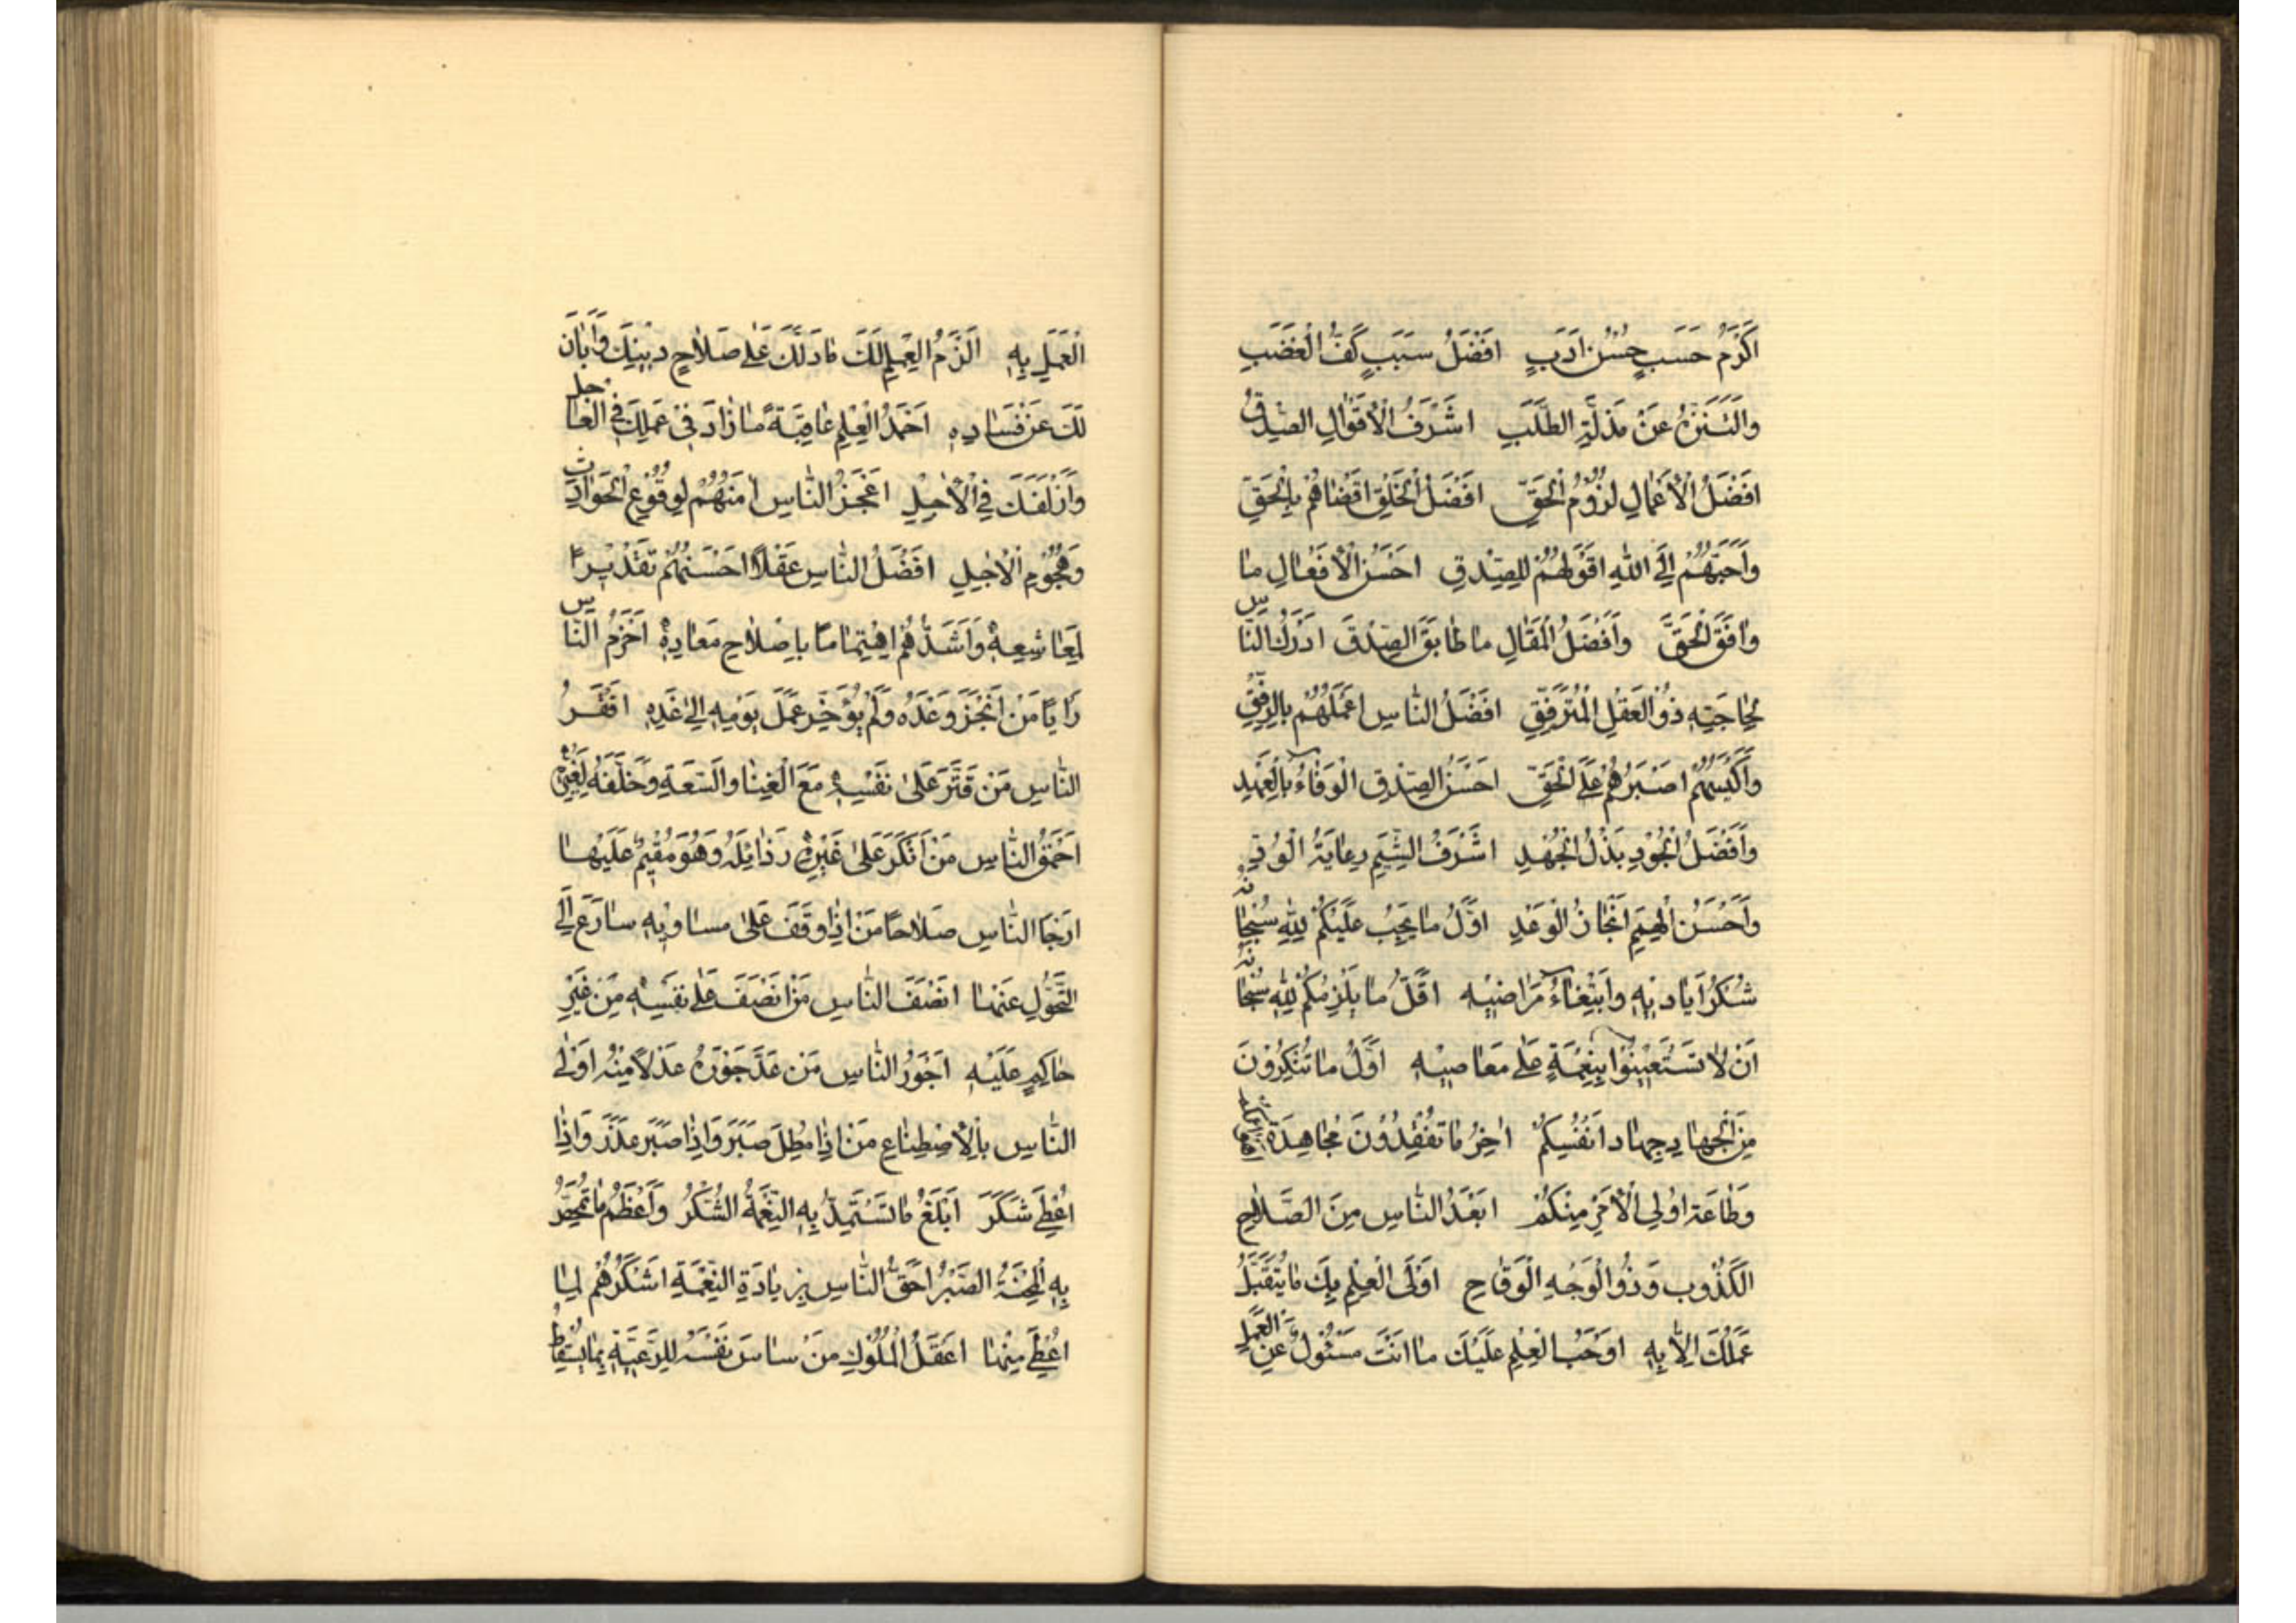 اَكْرَمُ حَسَبٍ حُسْنُ اَدَبٍ اَفْضَلُ سَبَبٍ كَفُّ الْغَضَبِ
وَالتَّنَزُّهُ عَنْ مَذَلَّةِ الطَّلَبِ اَشْرَفُ الْاَقْوالِ الصِّدْقُ
اَفْضَلُ الْاَعْمالِ لُزُومُ الْحَقِّ اَفْضَلُ الْخَلْقِ اَقْضاهُمْ بِالْحَقِّ
وَاَحَبُّهُمْ اِلَى اللهِ اَقْوَلُهُمْ لِلصِّدْقِ اَحْسَنُ الْاَفْعالِ ما
وافَقَ الْحَقَّ وَاَفْضَلُ الْمَقالِ ما طابَقَ الصِّدْقَ اَدْرَكُ النّاسِ
لِحاجَتِهِ ذُو الْعَقْلِ الْمُتَرَفِّقِ اَفْضَلُ النّاسِ اَعْمَلُهُمْ بِالرِّفْقِ
وَاَكْيَسُهُمْ اَصْبَرُهُمْ عَلَى الْحَقِّ اَحْسَنُ الصِّدْقِ الْوَفاءُ بِالْعَهْدِ
وَاَفْضَلُ الْجُودِ بَذْلُ الْجُهْدِ اَشْرَفُ الشِّيَمِ رِعايَةُ الْوُدِّ
وَاَحْسَنُ الْهِمَمِ اِنْجازُ الْوَعْدِ اَوَّلُ ما يَجِبُ عَلَيْكُمْ لِلّهِ سُبْحانَهُ
شُكْرُ اَيادِيهِ وَابْتِغاءُ مَراضِيهِ اَقَلُّ ما يَلْزَمُكُمْ لِلّهِ سُبْحانَهُ
اَنْ لا تَسْتَعِينُوا بِنِعَمِهِ عَلى مَعاصِيهِ اَوَّلُ ما تُنْكِرُونَ
مِنَ الْجِهادِ جِهادُ اَنْفُسِكُمْ اخِرُ ما تَفْقِدُونَ مُجاهَدَةُ اَهْوائِكُمْ
وَطاعَةُ اُولِي الْاَمْرِ مِنْكُمْ اَبْعَدُ النّاسِ مِنَ الصَّلاحِ
الْكَذُوبُ وَذُو الْوَجْهِ الْوَقاحِ اَوْلَى الْعِلْمِ بِكَ ما يُتَقَبَّلُ
عَمَلُكَ اِلّا بِهِ اَوْجَبُ الْعِلْمِ عَلَيْكَ ما اَنْتَ مَسْئُولٌ عَنِ الْعَمَلِ
الْعَمَلِ بِهِ اَلْزَمُ الْعِلْمِ لَكَ ما دَلَّكَ عَلى صَلاحِ دِينِكَ وَاَبانَ
لَكَ عَنْ فَسادِهِ اَحْمَدُ الْعِلْمِ عاقِبَةً ما زادَ فِي عَمَلِكَ فِي الْعاجِلِ
وَاَزْلَفَكَ فِي الْآجِلِ اَعْجَزُ النّاسِ امَنُهُمْ لِوُقُوعِ الْحَوادِثِ
وَهُجُومِ الْاَجَلِ اَفْضَلُ النّاسِ عَقْلًا اَحْسَنُهُمْ تَقْدِيرًا
لِمَعاشِهِ وَاَشَدُّهُمُ اهْتِمامًا بِاِصْلاحِ مَعادِهِ اَحْزَمُ النّاسِ
رَأْيًا مَنْ اَنْجَزَ وَعْدَهُ وَلَمْ يُؤَخِّرْ عَمَلَ يَوْمِهِ اِلى غَدِهِ اَفْقَرُ
النّاسِ مَنْ قَتَّرَ عَلى نَفْسِهِ مَعَ الْغِنا وَالسَّعَةِ وَخَلَّفَهُ لِغَيْرِهِ
اَحْمَقُ النّاسِ مَنْ اَنْكَرَ عَلى غَيْرِهِ رَذائِلَهُ وَهُوَ مُقِيمٌ عَلَيْها
اَرْجَا النّاسِ صَلاحًا مَنْ اِذا وَقَفَ عَلى مَساوِيهِ سارَعَ اِلَى
التَّحَوُّلِ عَنْها اَنْصَفُ النّاسِ مَنْ اَنْصَفَ عَلى نَفْسِهِ مِنْ غَيْرِ
حاكِمٍ عَلَيْهِ اَجْوَرُ النّاسِ مَنْ عَدَّ جَوْرَهُ عَدْلًا مِنْهُ اَوْلَى
النّاسِ بِالْاِصْطِناعِ مَنْ اِذا مُطِلَ صَبَرَ وَاِذا صَبَرَ عَذَرَ وَاِذا
اُعْطِيَ شَكَرَ اَبْلَغُ ما تَسْتَمِدُّ بِهِ النِّعْمَةُ الشُّكْرُ وَاَعْظَمُ ما تُمَحَّصُ
بِهِ الْمِحْنَةُ الصَّبْرُ اَحَقُّ النّاسِ بِزِيادَةِ النِّعْمَةِ اَشْكَرُهُمْ لِما
اُعْطِيَ مِنْها اَعْقَلُ الْمُلُوكِ مَنْ ساسَ نَفْسَهُ لِلرَّعِيَّةِ بِما يُسْقِطُ